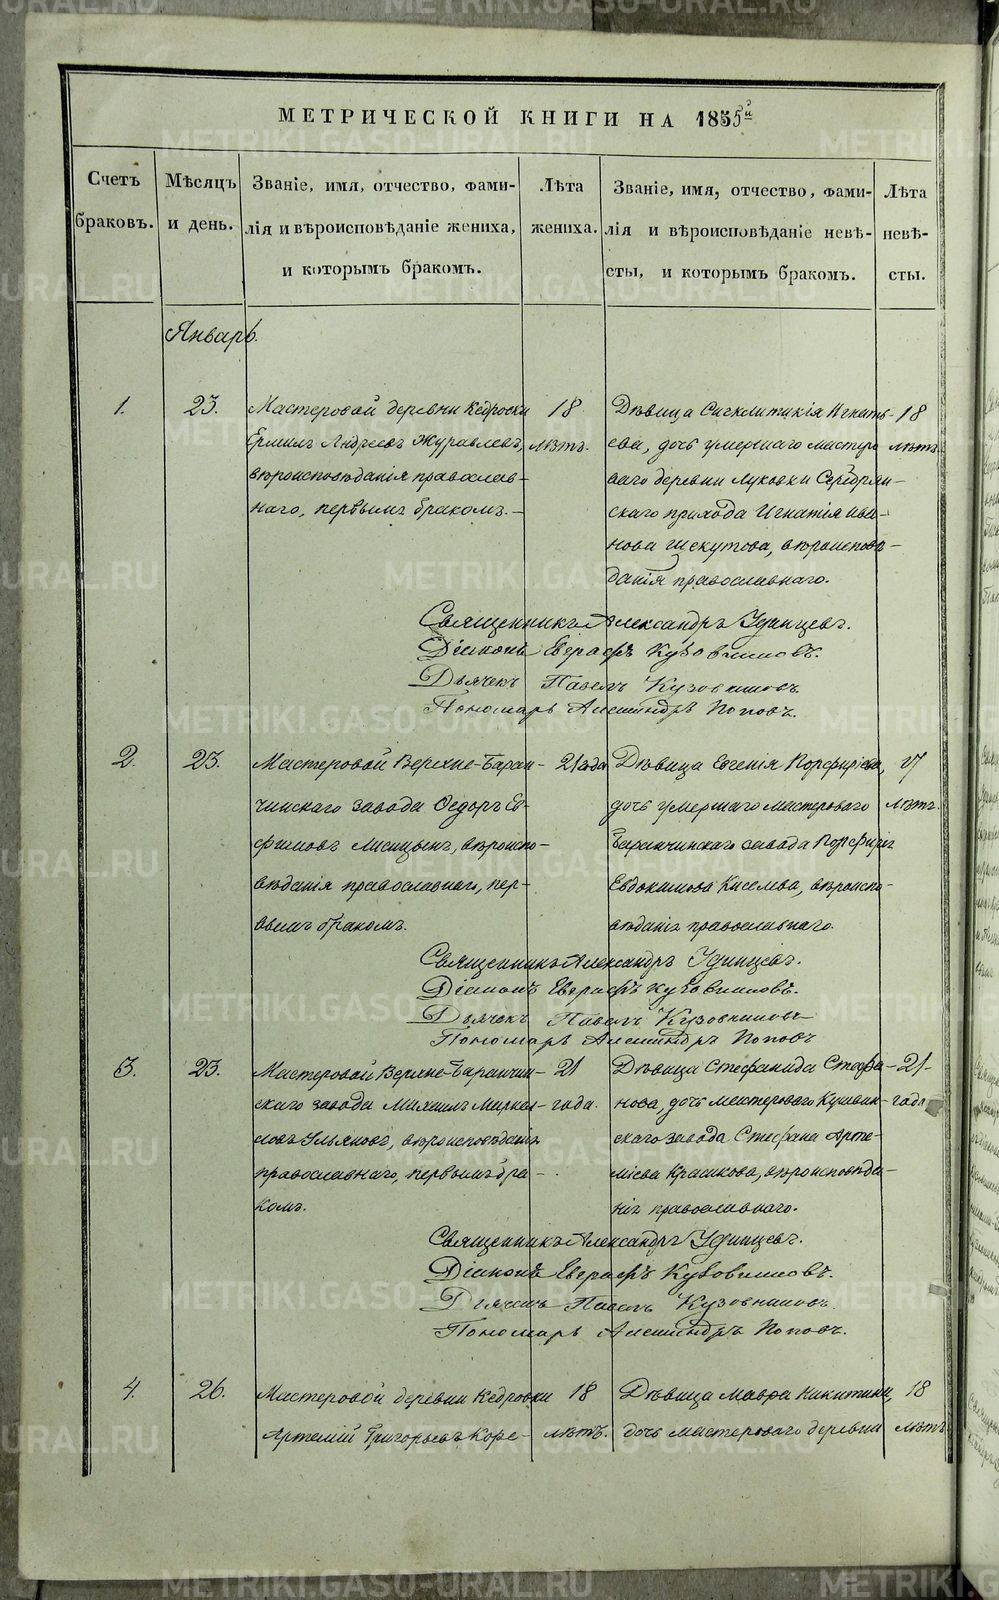 МЕТРИЧЕСКОЙ КНИГИ НА 1855й
Счетъ браковъ.
Мѣсяцъ и день.
Званіе, имя, отчество, фами-
лія и вѣроисповѣданіе жениха,
и которымъ бракомъ.
Лѣта жениха.
Званіе, имя, отчество, фами-
лія и вѣроисповѣданіе невѣ-
сты, и которымъ бракомъ.
Лѣта невѣ-
сты.
Январь.
1. 23.
Мастеровой деревни Кедровки
Ермилъ Андреевъ Журавлевъ,
вѣроисповѣданія православ-
наго, первымъ бракомъ.
18
лѣтъ.
Дѣвица Сигклитикія Игнать-
ева, дочь умершаго мастеро
ваго деревни Луковки Серебрян-
скаго прихода Игнатія Ива-
нова Шекутова, вѣроисповѣ-
данія православнаго.
18
лѣтъ.
Священникъ Александръ Удинцевъ.
Діаконъ Еварестъ Кузовниковъ.
Дьячекъ Павелъ Кузовниковъ
Пономарь Александръ Поповъ.
2. 23.
Мастеровой Верхне-Баран-
чинскаго завода Ѳедоръ Ев-
фимовъ Лисицынъ, вѣроиспо-
вѣданія православнаго, пер-
вымъ бракомъ.
21 года
Дѣвица Евгенія Порфирьева,
дочь умершаго мастероваго
Баранчинскаго завода Порфирія
Евдокимова Киселева, вѣроиспо-
вѣданія православнаго.
лѣтъ.
Священникъ Александръ Удинцевъ.
Діаконъ Еварестъ Кузовниковъ.
Дьячекъ Павелъ Кузовниковъ
Пономарь Александръ Поповъ
3. 23.
Мастеровой Верхне-Баранчин-
скаго завода Михаилъ Маркел-
ловъ Ульяновъ, вѣроисповѣданія
православнаго, первымъ бра-
комъ.
21
года.
Дѣвица Стефанида Стефа-
нова, дочь мастероваго Кушвин-
скаго завода Стефана Арте-
міева Красикова, вѣроисповѣда-
нія православнаго.
21
года
Священникъ Александръ Удинцевъ.
Діаконъ Еварестъ Кузовниковъ.
Дьячекъ Павелъ Кузовниковъ.
Пономарь Александръ Поповъ.
4. 26.
Мастеровой деревни Кедровки
Артемій Григорьевъ Коре-
18
лѣтъ.
Дѣвица Мавра Никитина,
дочь мастероваго деревни
18
лѣтъ
METRIKI.GASO-URAL.RU